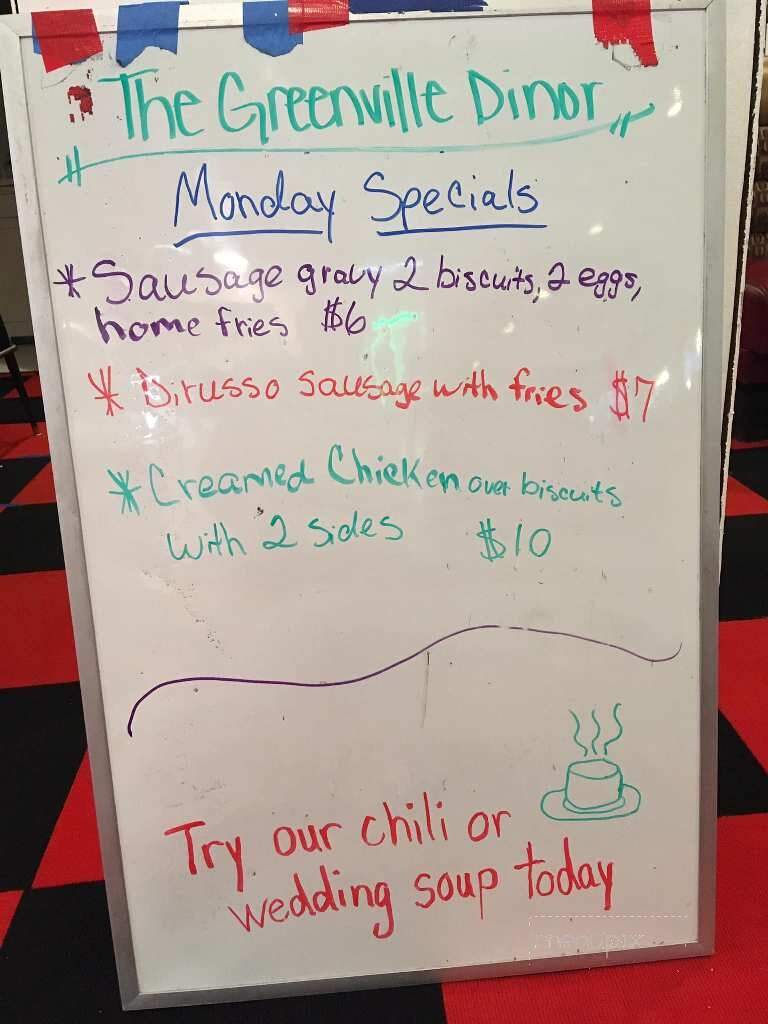 The Greenville Dinor
Monday Specials
* Sausage gravy 2 biscuits, 2 eggs,
home fries $6
* Dirusso sausage with fries $7
* Creamed Chicken over biscuits
with 2 sides $10
Try our chili or
wedding soup today
menupix